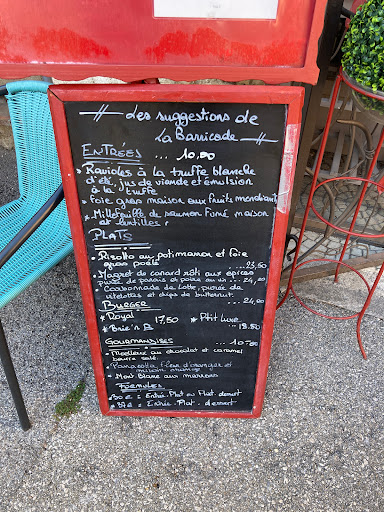 Les suggestions de
La Barricade
ENTRÉES ... 10,00
* Ravioles à la truffe blanche
d'été, jus de viande et émulsion
à la truffe
* Foie gras maison aux fruits mendiants
* Millefeuille de saumon fumé maison
et lentilles
PLATS
* Risotto au potimarron et foie
gras poêlé ... 23,50
* Magret de canard rôti aux épices
purée de panais et poire au vin ... 24,00
* Carbonnade de Lotte, purée de
vitelottes et chips de butternut.
... 24,00
BURGER
* Royal 17,50 * P'tit Luxe
* Brie'n ... 18.50
GOURMANDISES ... 10.00
* Moelleux au chocolat et caramel
beurre salé
* Panacotta, fleur d'oranger et
* Mont Blanc aux marrons
Formules
30€ = Entrée. Plat ou Plat. dessert
= Entrée. Plat. dessert